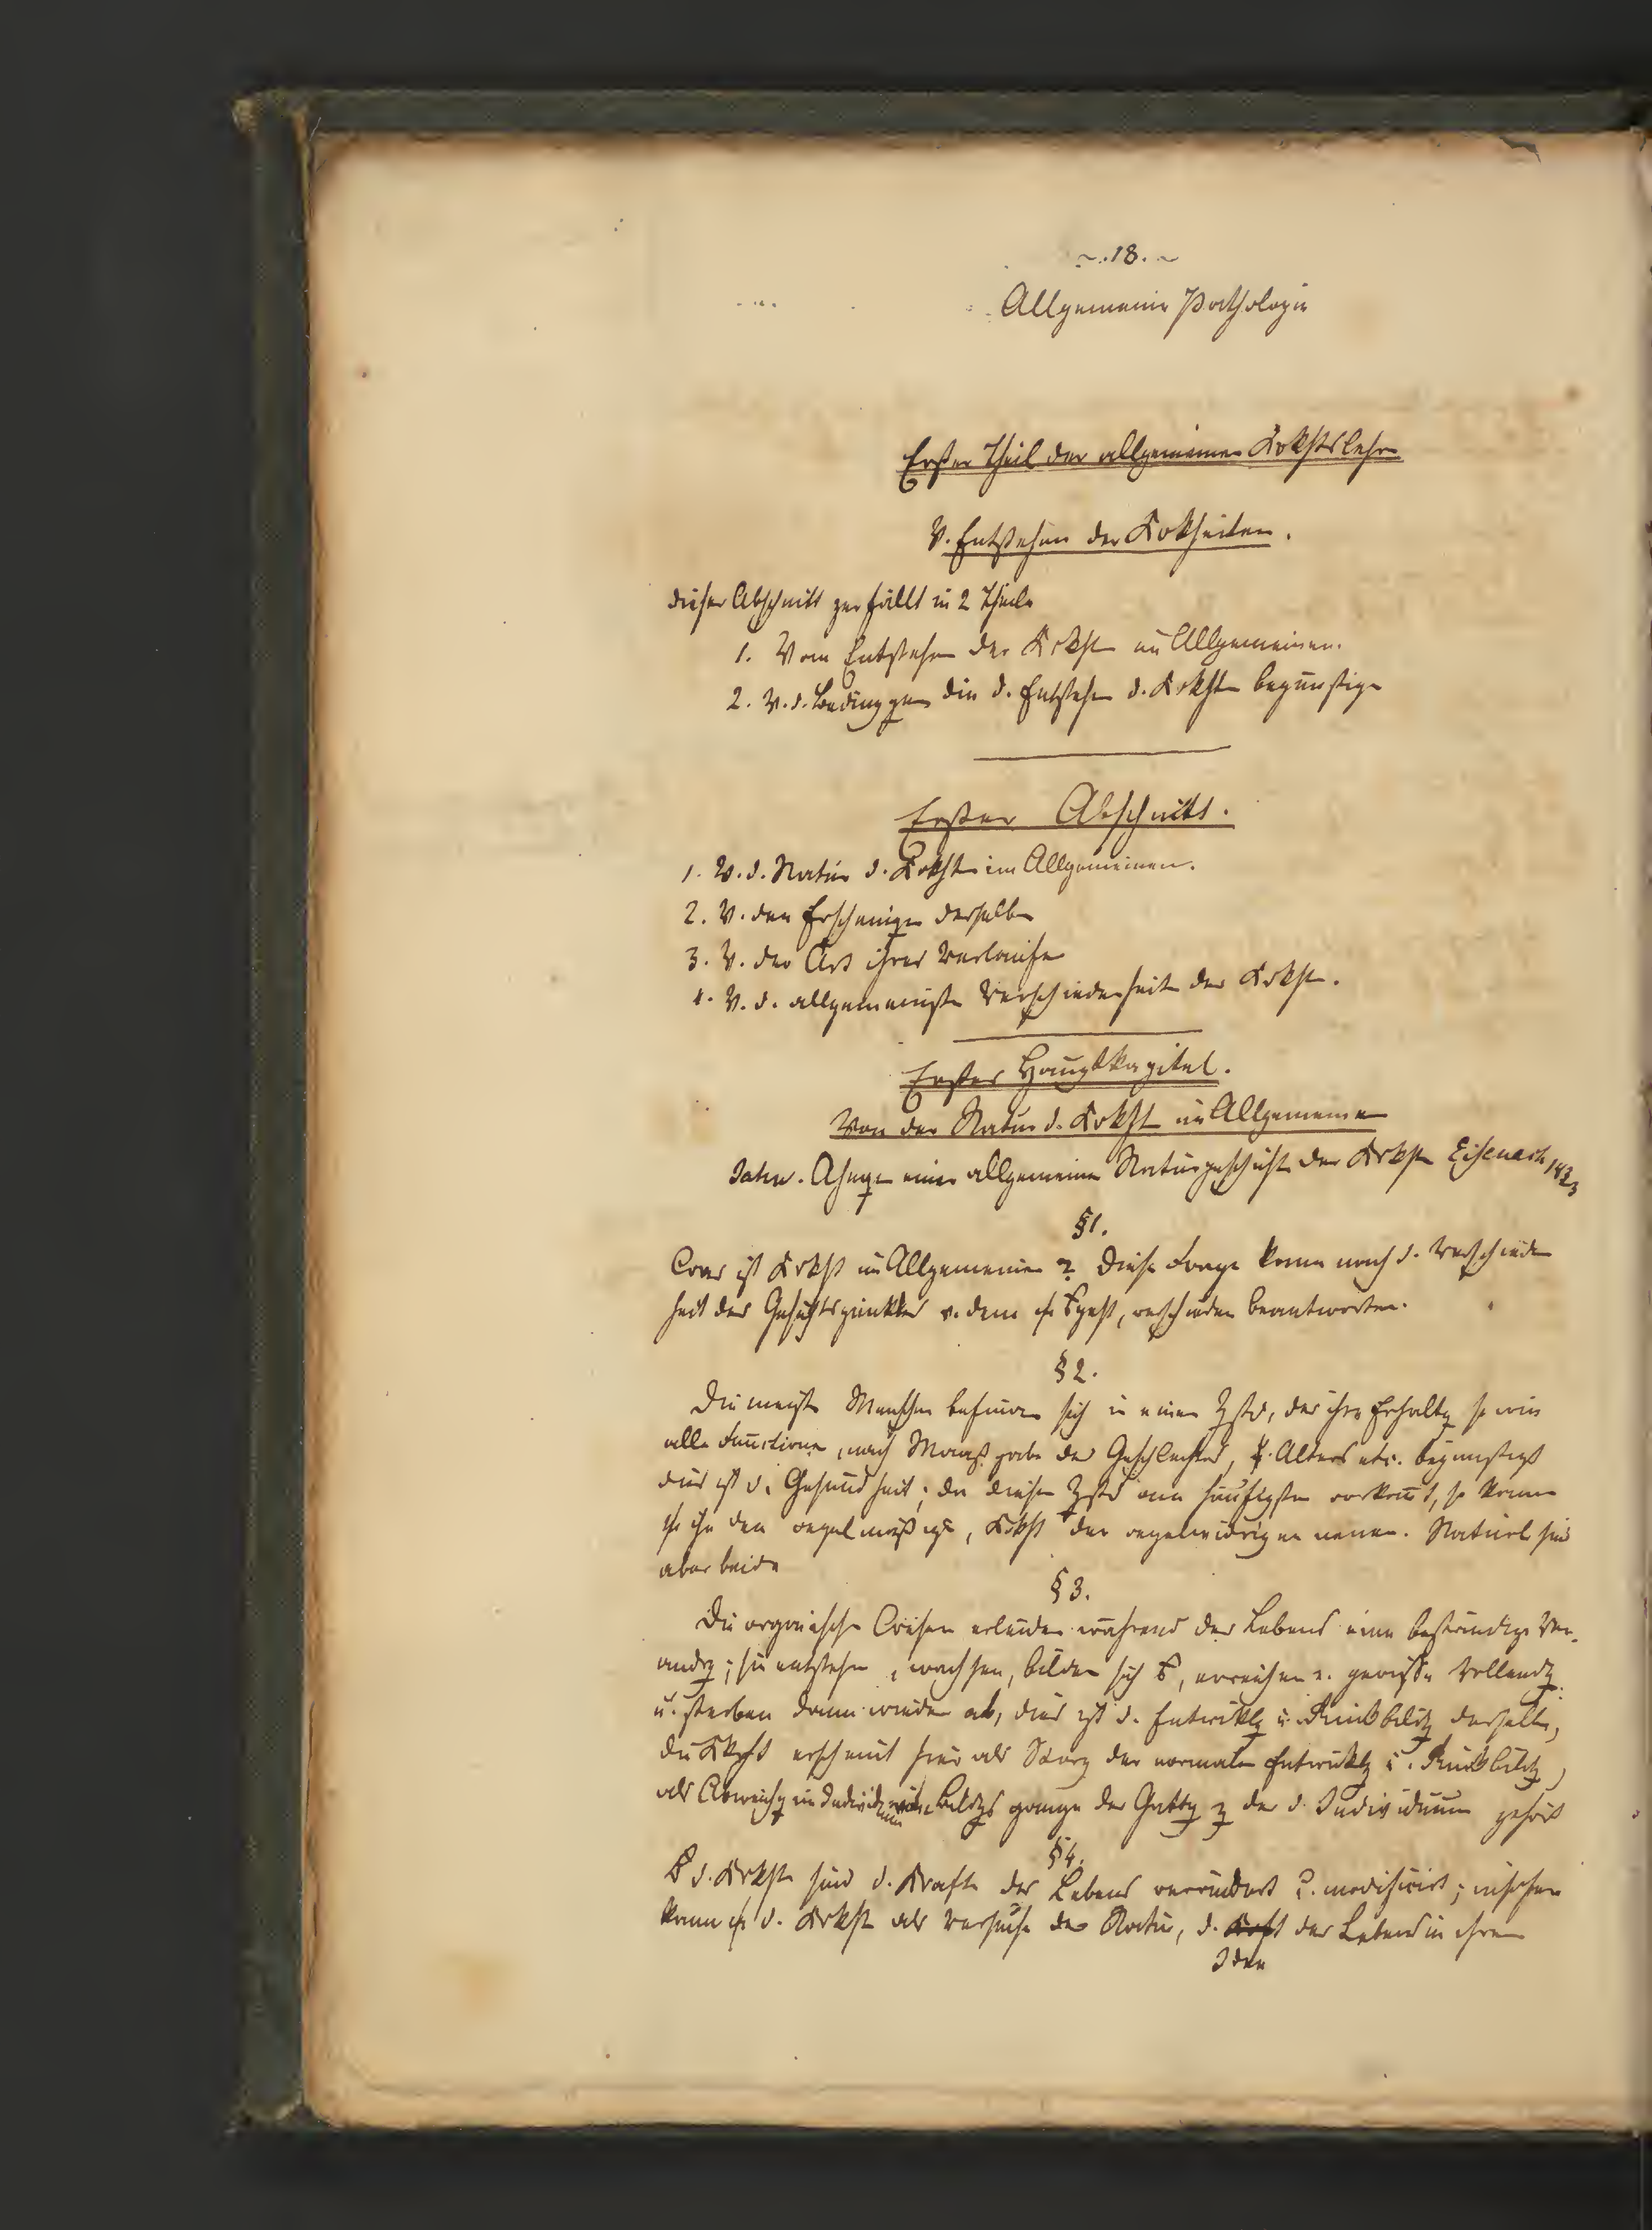 ~. 18. ~
Allgemeine Pathologie
Erster Theil der allgemeinen Krkhtslehre
V. Entstehen der Krkheiten.
dieser Abschnitt zerfällt in 2 Theile
1. Vom Entstehen der Krkht im Allgemeinen.
2. V. d. Bedinggen die d. Entstehen d. Krkhtn begünstigen
Erster Abschnitt.
1. V. d. Natur d. Krkht im Allgemeinen.
2. V. den Erscheinigen derselben
3. V. der Art ihres Verlaufes
4. V. d. allgemeinsten Verschiedenheiten der Krkht.
Erstes Hauptkapitel.
Von der Natur d. Krkht im Allgemeinen
einer allgemeinen Naturgeschichte der Krkhtn Eisenach 1823
§ 1.
Was ist Krkht im Allgemeinen? Diese Frage kann nach d. Verschieden
heit des Gesichtspunktes v. dem geht, verschieden beantworten.
§ 2.
Die meisten Menschen befinden sich in einem Zstd, der ihre Erhaltg so wie
alle Functionen, nach Maasgabe des Geschlechtes, Alters etc. begünstigt
dies ist d. Gesundheit; da dieser Zstd am häufigsten vorkomt, so kann
ihn den regelmäßigen, Krkht den regelwidrigen nennen. Natürl sind
aber beide
§ 3.
Die organischen Wesen erleiden während des Lebens eine beständige Ver-
andrg; sie entstehen, wachsen, bilden sich, erreichen e. gewisse Vollendg
u. sterben dann wieder ab, dies ist d. Entwicklg u. Rückbildg derselben,
die Krkht erscheint hier als Störg der normalen Entwicklg u. Rückbildg,
als Abweichg im Individuum Bildgsgange der Gattg z der d. Individuum gehört
§ 4.
d. Krkht sind d. Krafte des Lebens verändert modificirt; insofern
kann d. Krkht als Versuche der Natur, d. des Lebens in ihren
Iden